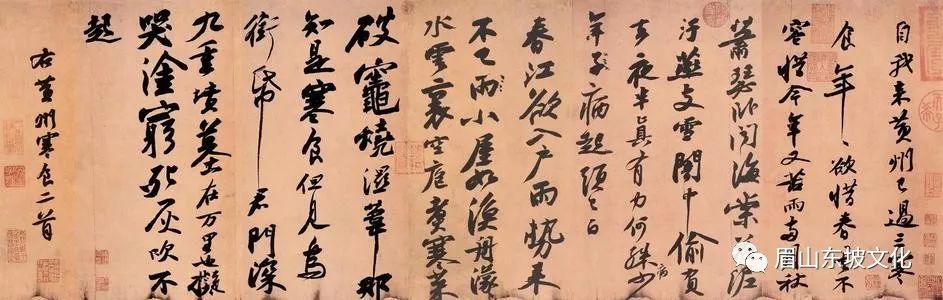 自我來黃州已過三寒
食年〻欲惜春春去不
容惜今年又苦雨兩月秋
蕭瑟臥聞海棠花泥
汙燕支雪闇中偷負
去夜半真有力何殊病少
年子病起頭已白
春江欲入戶雨勢來
不已雨小屋如漁舟濛〻
水雲裏空庖煮寒菜
破竈燒濕葦那
知是寒食但見烏
銜帋君門深
九重墳墓在万里也擬
哭塗窮死灰吹不
起
右黃州寒食二首
眉山东坡文化